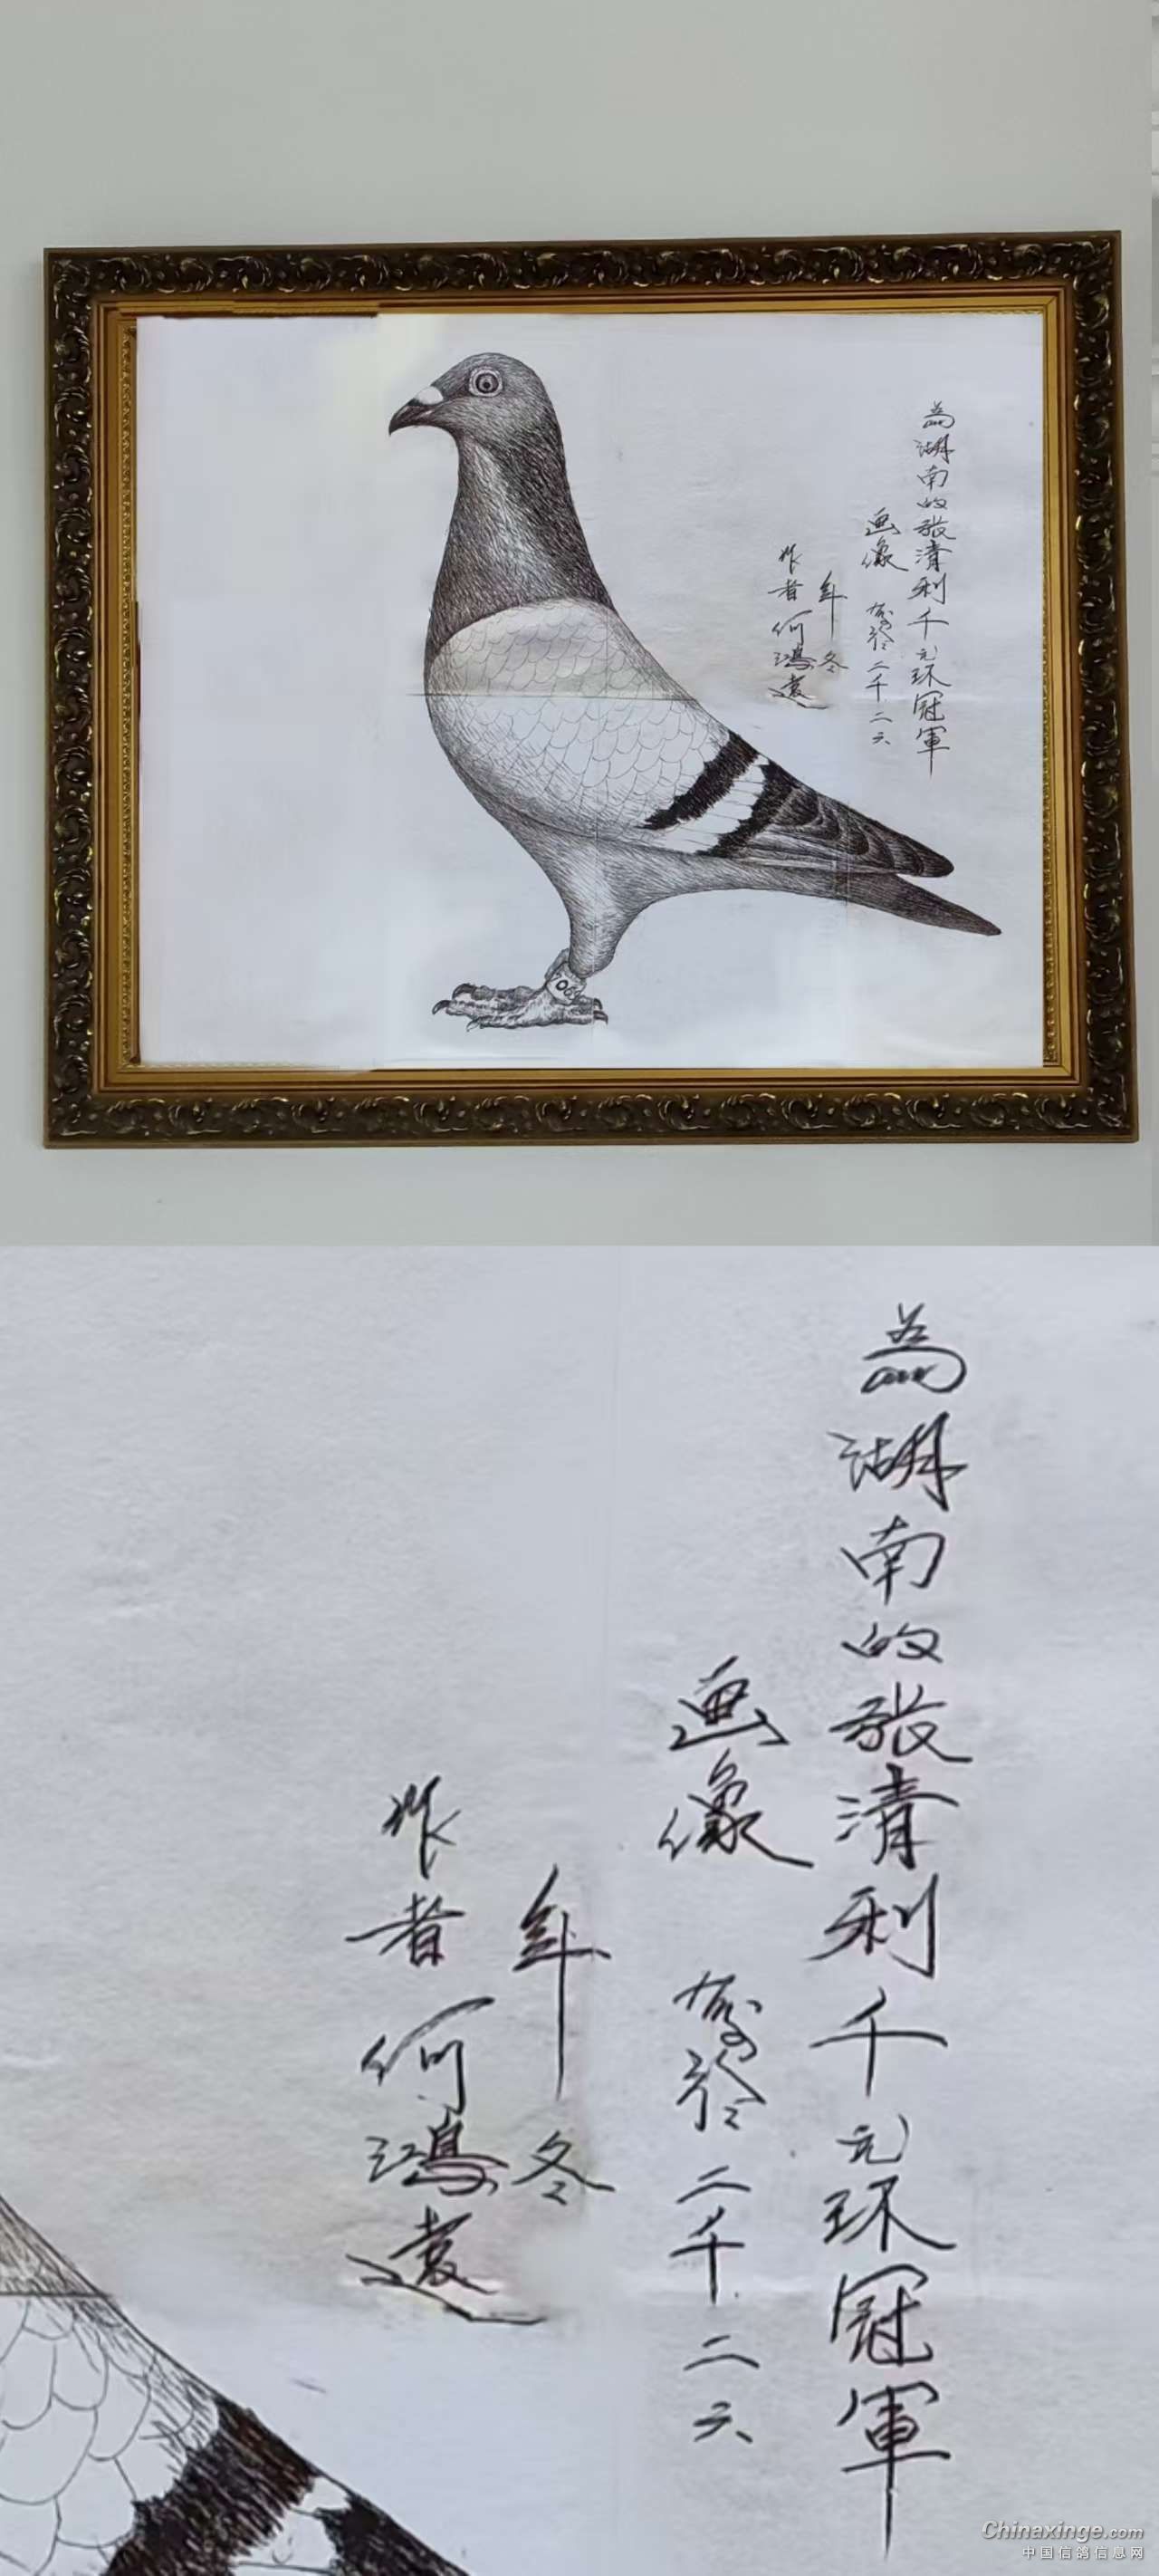 為湖南的張清利千元环冠軍
画像 劵於二千二六
年冬
作者何鴻遠
706
為湖南的張清利千元环冠軍
画像 於二千二六
年冬
作者何鴻遠
Chinaxinge.com
中国信鸽信息网